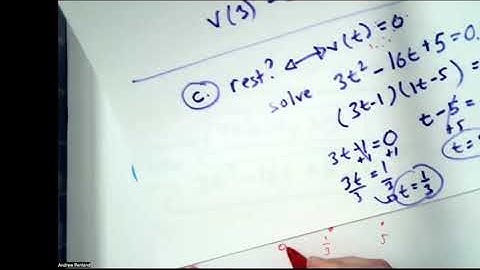 v(3)
c. rest? ↔ v(t)=0
solve 3t² - 16t + 5 = 0.
(3t-1)(1t-5) =
3t-1=0
+1 +1
3t/3 = 1/3
t = 1/3
t - 5 =
+5
t =
0 1/3 5
Andrew Penland